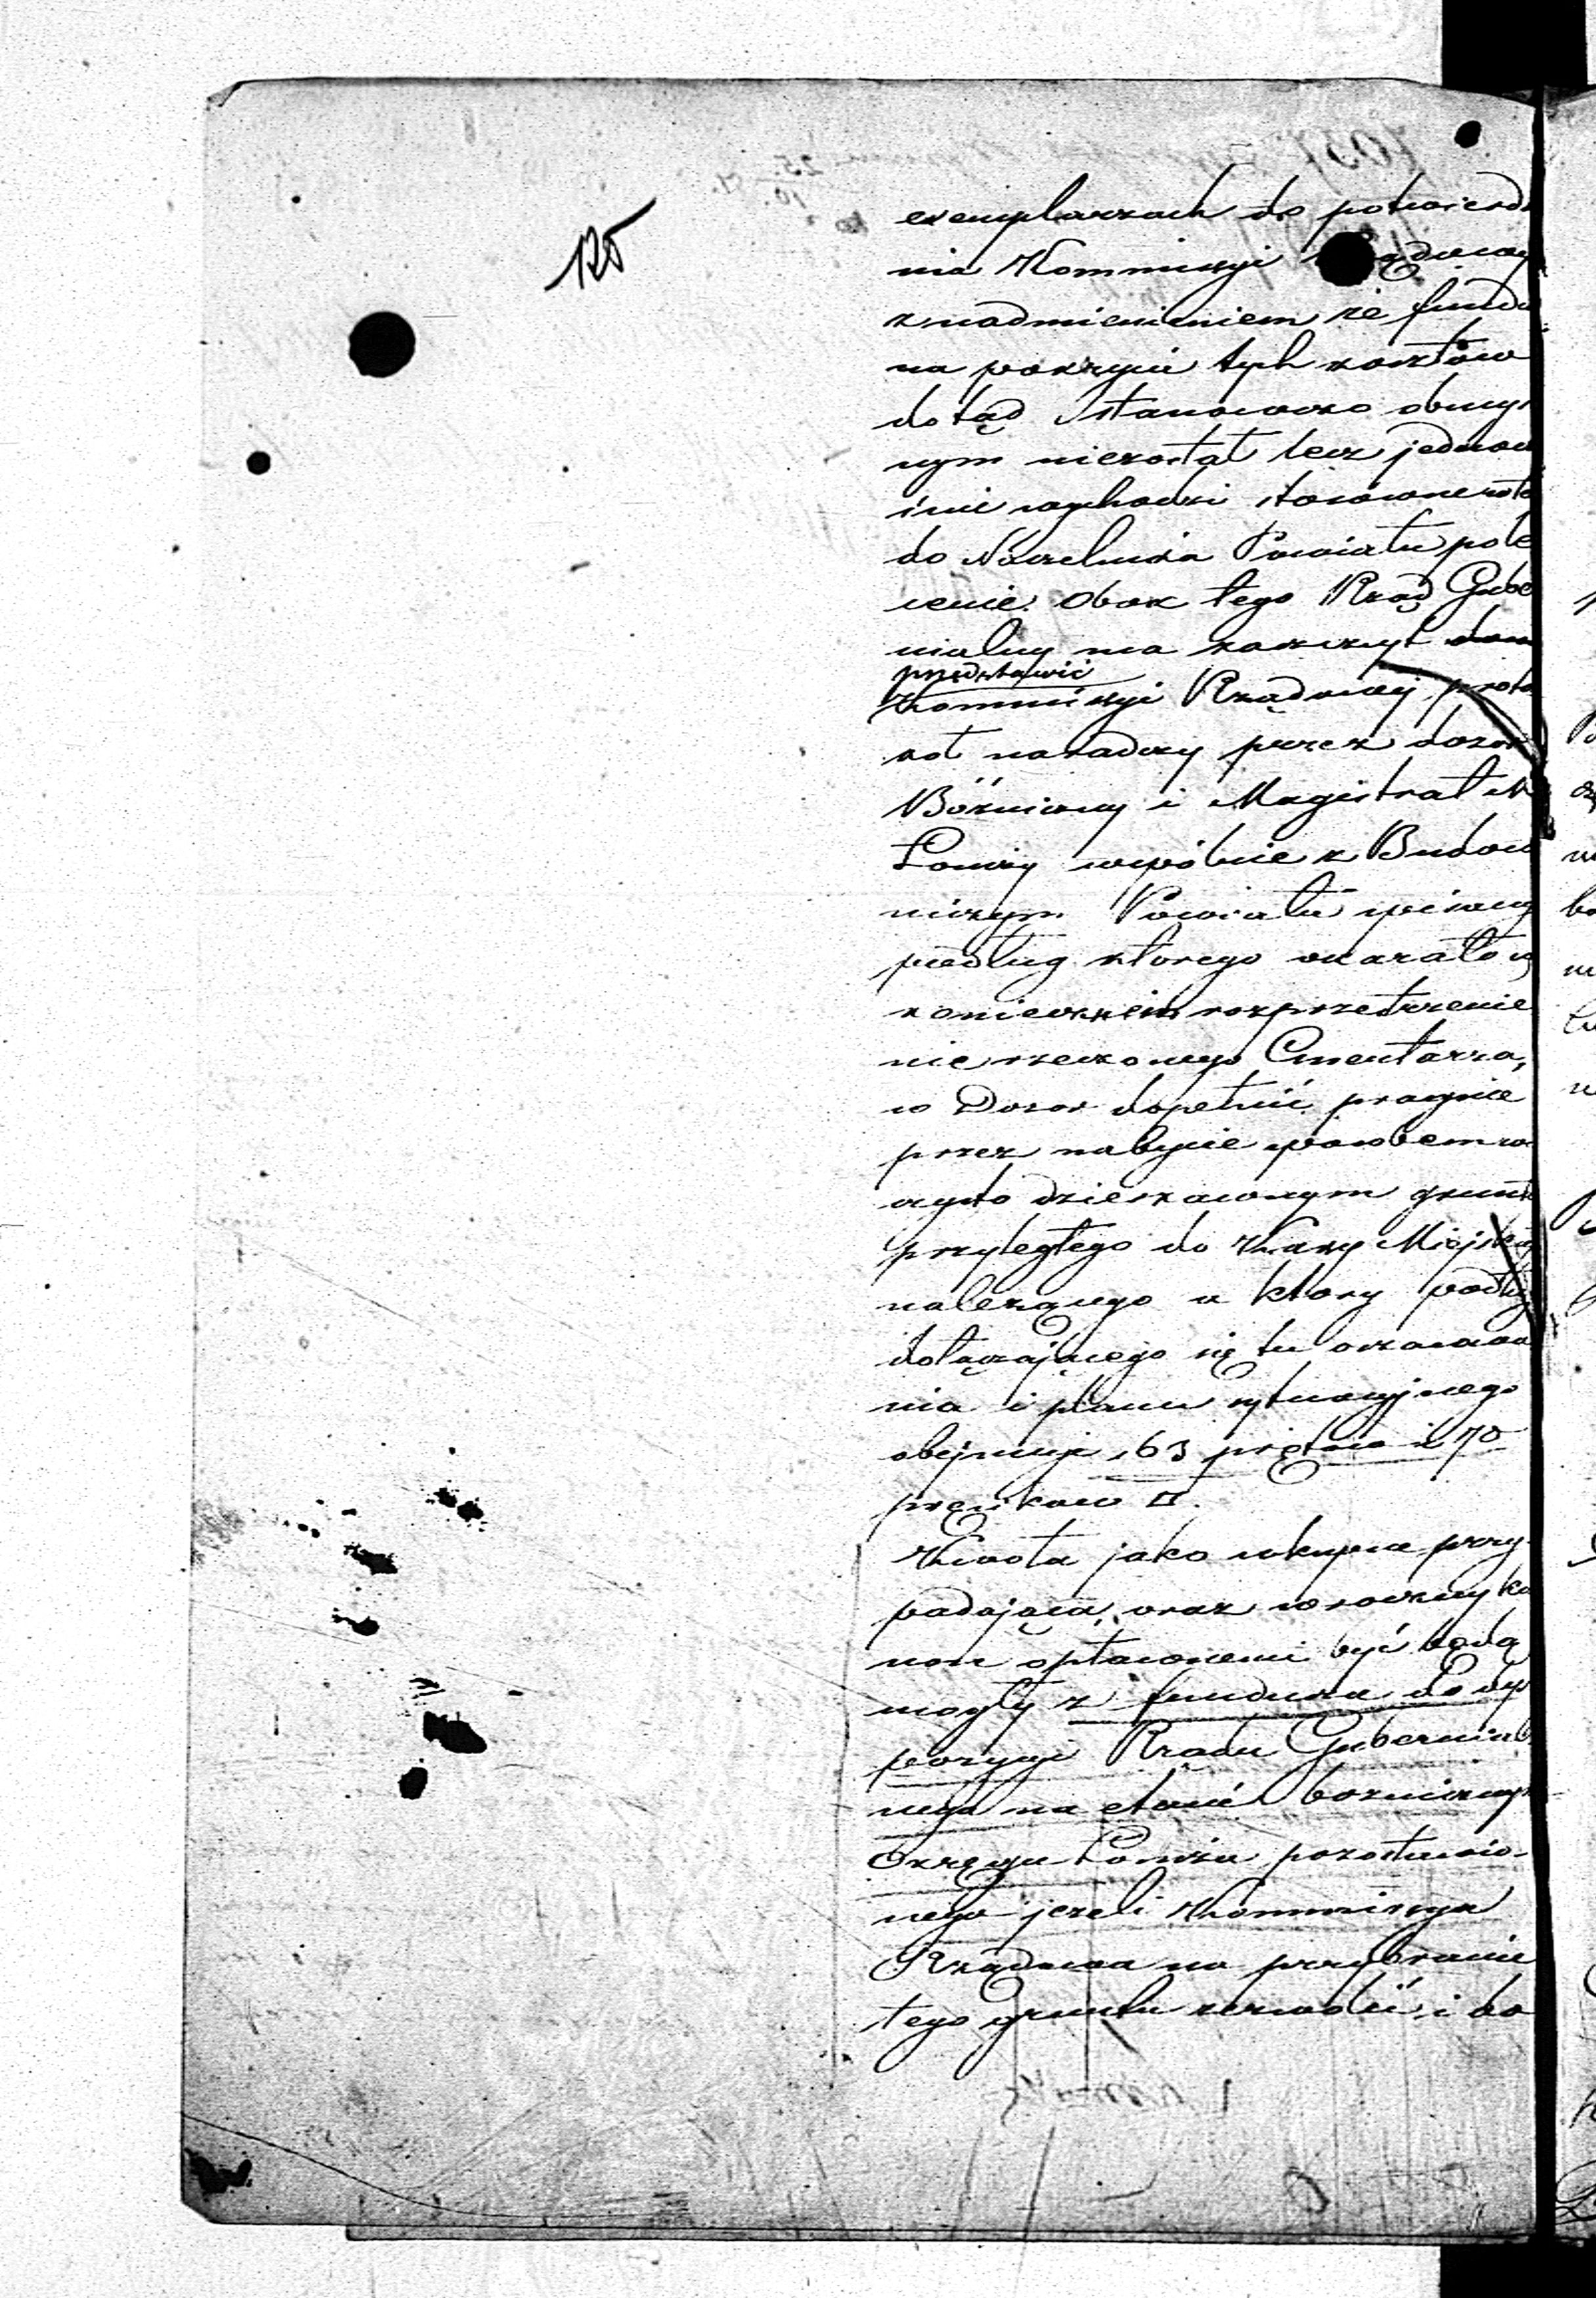 125
exemplarzach do potwierdz
nia Kommissyi Rządowey
z nadmienieniem że fundu
na pokrycie tych kosztów
dotąd stanowczo obmyś
nym niezostał lecz jednocz
śnie wychodzi stosowne
do Naczelnika Powiatu pole
cenie. Obok tego Rząd Gube
nialny ma zaszczyt
przedstawić
Kommissyi Rządowej proto
kół narady przez dozór
Bóżniczny i Magistrat M
Łomży wspólnie z Budow
niczym Powiatu spisany
podług którego okazało się
koniecznem rozprzestrzenie
nie rzeczonego Cmentarza,
co Dozór dopełnić pragnie
przez nabycie sposobem
czysto dzierżawnym gruntu
przyległego do Kassy Miejskiej
należącego a który podłu
dołączającego się tu oszacowa
nia i planu sytuacyjnego
obejmuje 63 prętów i 70
pręcików □.
Kwota jako wkupna przy
padająca, oraz wroczny ka
non opłaconemi być będą
mogły z funduszu do dys
pozycyi Rządu Gubernial
nego na etacie bożnicznym
Okręgu Łomża pozostawio-
nego jeżeli Kommissya
Rządowa na przybranie
tego gruntu zezwolić i do